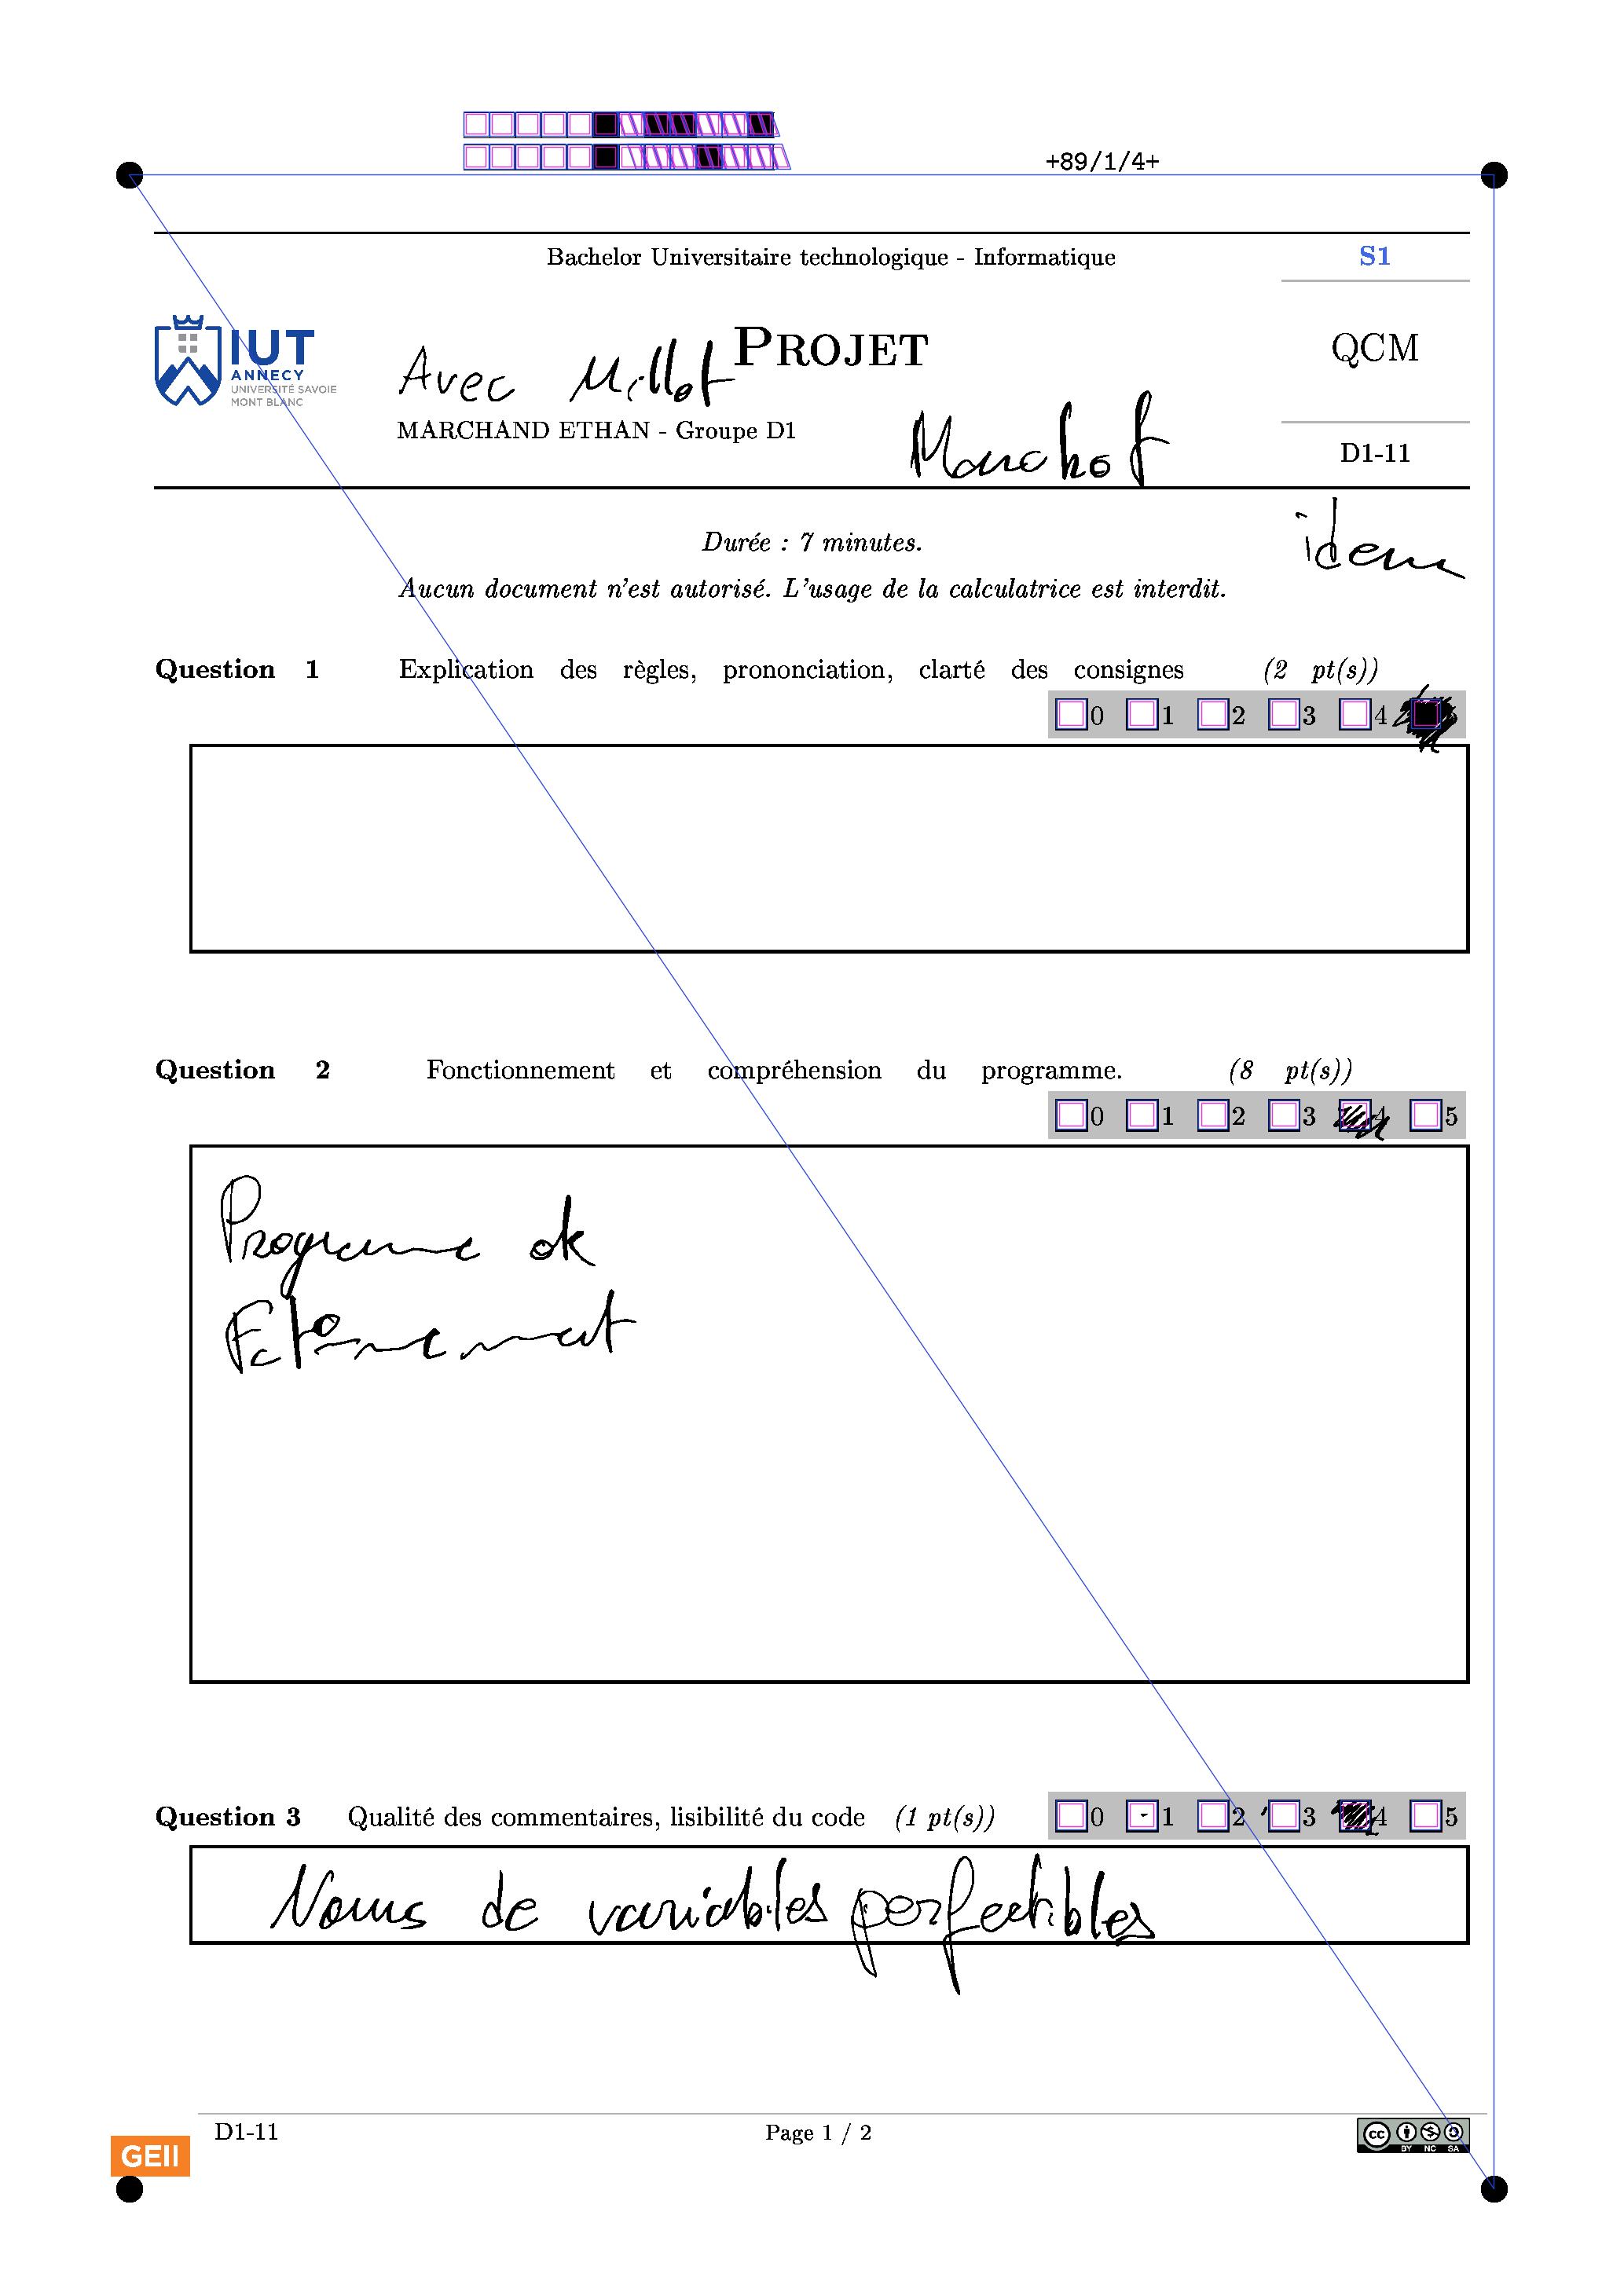 +89/1/4+
Bachelor Universitaire technologique - Informatique
S1
IUT
ANNECY
UNIVERSITÉ SAVOIE
MONT BLANC
Avec Millot
PROJET
QCM
MARCHAND ETHAN - Groupe D1
D1-11
idem
Durée : 7 minutes.
Aucun document n'est autorisé. L'usage de la calculatrice est interdit.
Question 1 Explication des règles, prononciation, clarté des consignes (2 pt(s))
0 1 2 3 4
Question 2 Fonctionnement et compréhension du programme. (8 pt(s))
0 1 2 3 4 5
Programme ok
Question 3 Qualité des commentaires, lisibilité du code (1 pt(s))
0 1 2 3 4 5
Noms de variables perfectibles
D1-11
Page 1 / 2
GEII
cc
BY NC SA